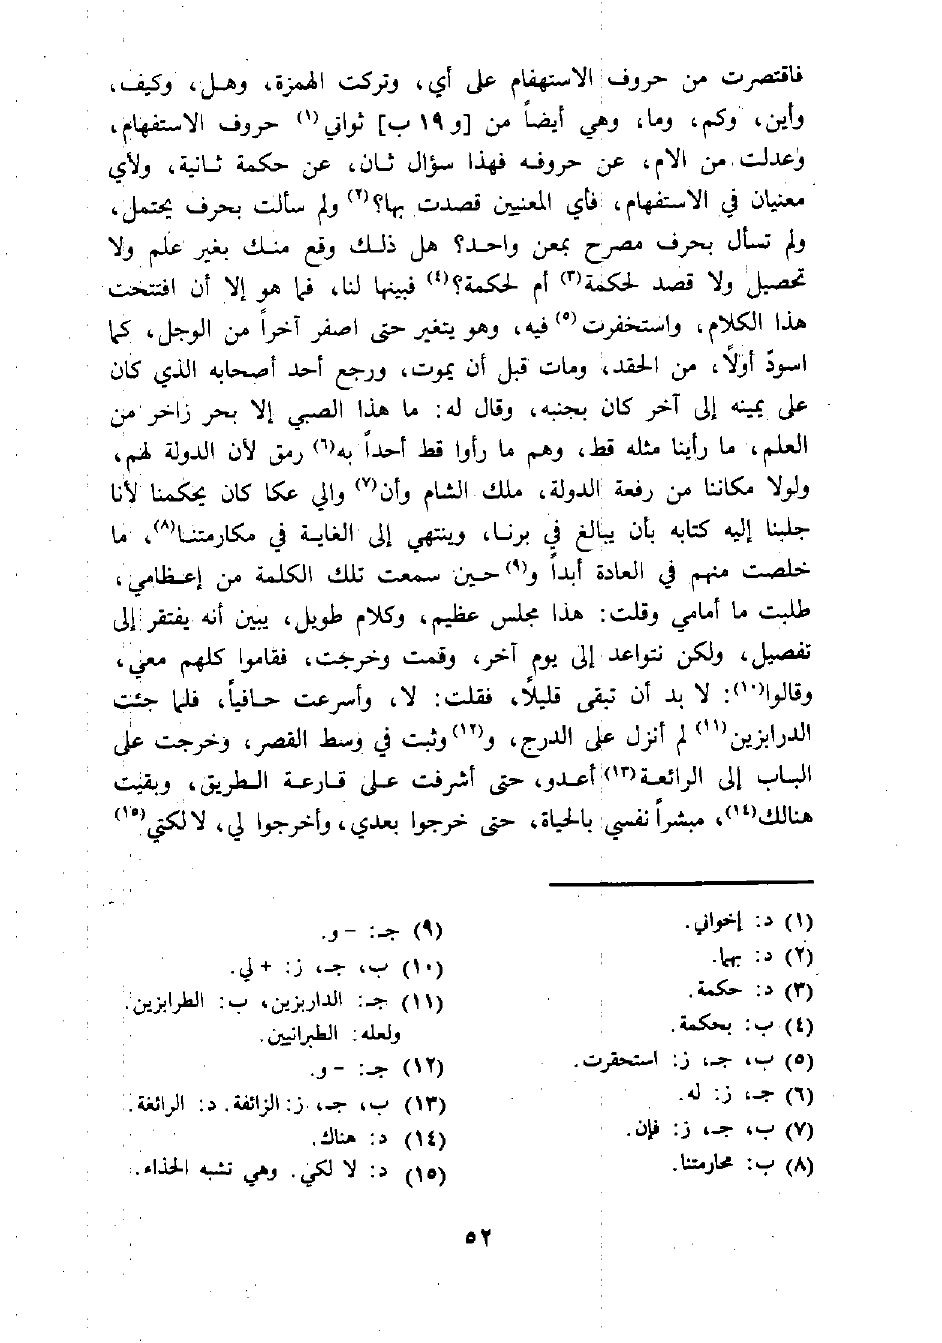 فاقتصرت من حروف الاستفهام على أي، وتركت الهمزة، وهل، وكيف،
وأين، وكم، وما، وهي أيضاً من [و ١٩ ب] ثواني(١) حروف الاستفهام،
وعدلت من الام، عن حروفه فهذا سؤال ثان، عن حكمة ثانية، ولأي
معنيان في الاستفهام، فأي المعنيين قصدت بها؟(٢) ولم سألت بحرف يحتمل،
ولم تسأل بحرف مصرح بمعن واحد؟ هل ذلك وقع منك بغير علم ولا
تحصيل ولا قصد لحكمة(٣) أم لحكمة؟(٤) فبينها لنا، فما هو إلا أن افتتحت
هذا الكلام، واستخفرت(٥) فيه، وهو يتغير حتى اصفر آخراً من الوجل، كما
اسودّ أولاً، من الحقد، ومات قبل أن يموت، ورجع أحد أصحابه الذي كان
على يمينه إلى آخر كان بجنبه، وقال له: ما هذا الصبي إلا بحر زاخر من
العلم، ما رأينا مثله قط، وهم ما رأوا قط أحداً به(٦) رمق لأن الدولة لهم،
ولولا مكاننا من رفعة الدولة، ملك الشام وأن(٧) والي عكا كان يحكمنا لأنا
جلبنا إليه كتابه بأن يبالغ في برنا، وينتهي إلى الغاية في مكارمتنا(٨)، ما
خلصت منهم في العادة أبداً و(٩) حين سمعت تلك الكلمة من إعظامي،
طلبت ما أمامي وقلت: هذا مجلس عظيم، وكلام طويل، يبين أنه يفتقر إلى
تفصيل، ولكن نتواعد إلى يوم آخر، وقمت وخرجت، فقاموا كلهم معي،
وقالوا(١٠): لا بد أن تبقى قليلاً، فقلت: لا، وأسرعت حافياً، فلما جئت
الدرابزين(١١) لم أنزل على الدرج، و(١٢) وثبت في وسط القصر، وخرجت على
الباب إلى الرائعة(١٣) أعدو، حتى أشرفت على قارعة الطريق، وبقيت
هنالك(١٤)، مبشراً نفسي بالحياة، حتى خرجوا بعدي، وأخرجوا لي، لالكتي(١٥)
(١) د: إخواني.
(٢) د: بهما.
(٣) د: حكمة.
(٤) ب: بحكمة.
(٥) ب، جـ، ز: استحقرت.
(٦) جـ، ز: له.
(٧) ب، جـ، ز: فإن.
(٨) ب: محارمتنا.
(٩) جـ: - و.
(١٠) ب، جـ، ز: + لي.
(١١) جـ: الداربزين، ب: الطرابزين.
ولعله: الطبرانيين.
(١٢) جـ: - و.
(١٣) ب، جـ، ز: الزائفة. د: الرائغة.
(١٤) د: هناك.
(١٥) د: لا لكي. وهي تشبه الحذاء.
٥٢